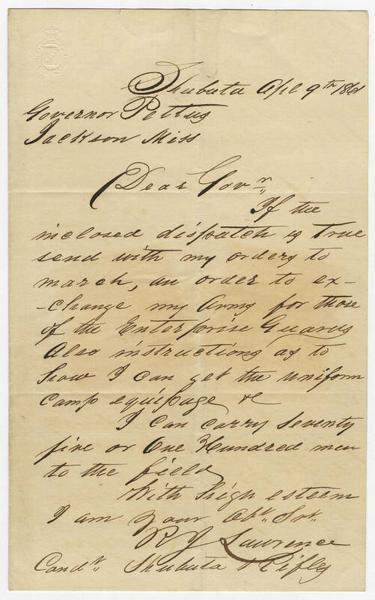 Shubuta Apl 9th 1861
Governor Pettus
Jackson Miss
Dear Govr.
If the
inclosed dispatch is true
send with my orders to
march, an order to ex-
-change my Arms for those
of the Enterprise Guards
Also instructions as to
how I can get the uniform
Camp equipage &c
I can carry seventy
five or One Hundred men
to the field
With high esteem
I am your Obt. Svt.
R J Lawrence
Comdr. Shubuta Rifles